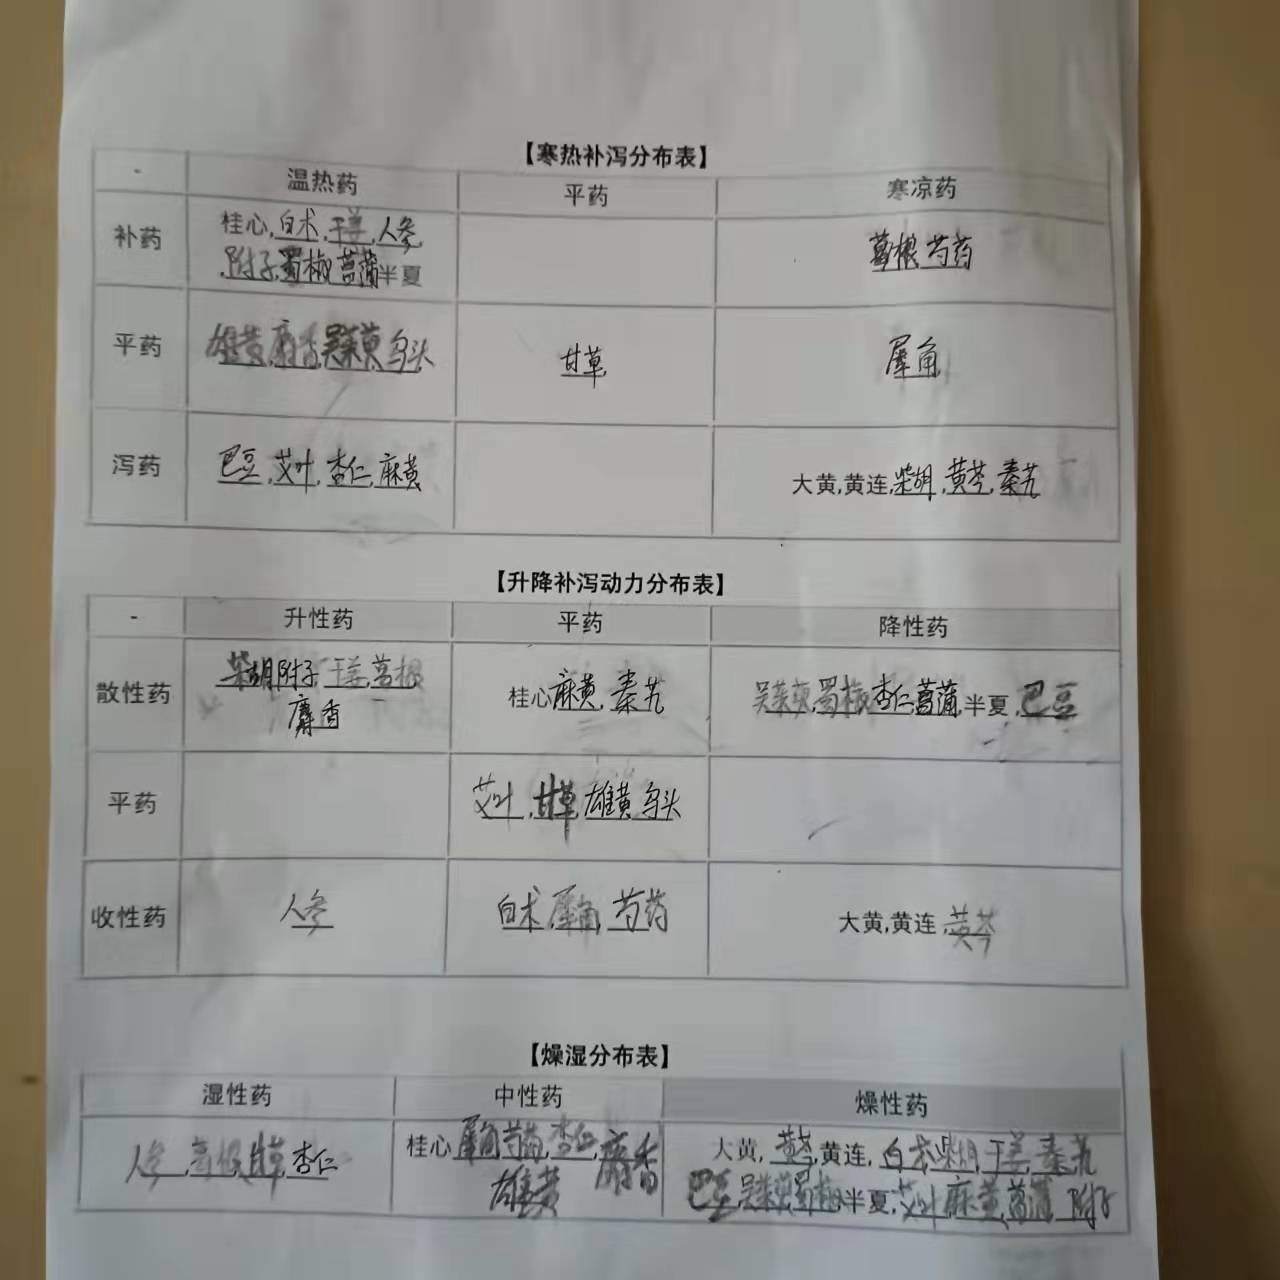 【寒热补泻分布表】
- 温热药 平药 寒凉药
补药 桂心,白术,干姜,人参,
附子,蜀椒,菖蒲半夏
葛根,芍药
平药 雄黄,麝香,吴茱萸,乌头 甘草 犀角
泻药 巴豆,艾叶,杏仁,麻黄 大黄,黄连,柴胡,黄芩,秦艽
【升降补泻动力分布表】
- 升性药 平药 降性药
散性药 柴胡,附子,干姜,葛根
麝香
桂心,麻黄,秦艽 吴茱萸,蜀椒,杏仁,菖蒲,半夏,巴豆
平药 艾叶,甘草,雄黄,乌头
收性药 人参 白术,犀角,芍药 大黄,黄连,黄芩
【燥湿分布表】
湿性药 中性药 燥性药
人参,葛根,甘草,杏仁 桂心,犀角,芍药,杏仁,麝香
雄黄
大黄,黄芩,黄连,白术,柴胡,干姜,秦艽
巴豆,吴茱萸,蜀椒,半夏,艾叶,麻黄,菖蒲,附子